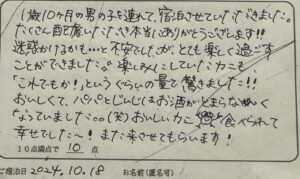 1歳10ヶ月の男の子を連れて、宿泊させていただきました。
たくさん配慮いただき本当にありがとうございます!!
迷惑かけるかも…と不安でしたが、とても楽しく過ごす
ことができました。楽しみにしていたカニも
「これでもか!」というぐらいの量で驚きました!!
おいしくて、パパとじぃじはお酒がとまらなく
なっていました。(笑)おいしいカニ食べられて
幸せでした〜!また来させてもらいます!
10点満点で 10 点
ご宿泊日 2024.10.18 お名前(匿名可)